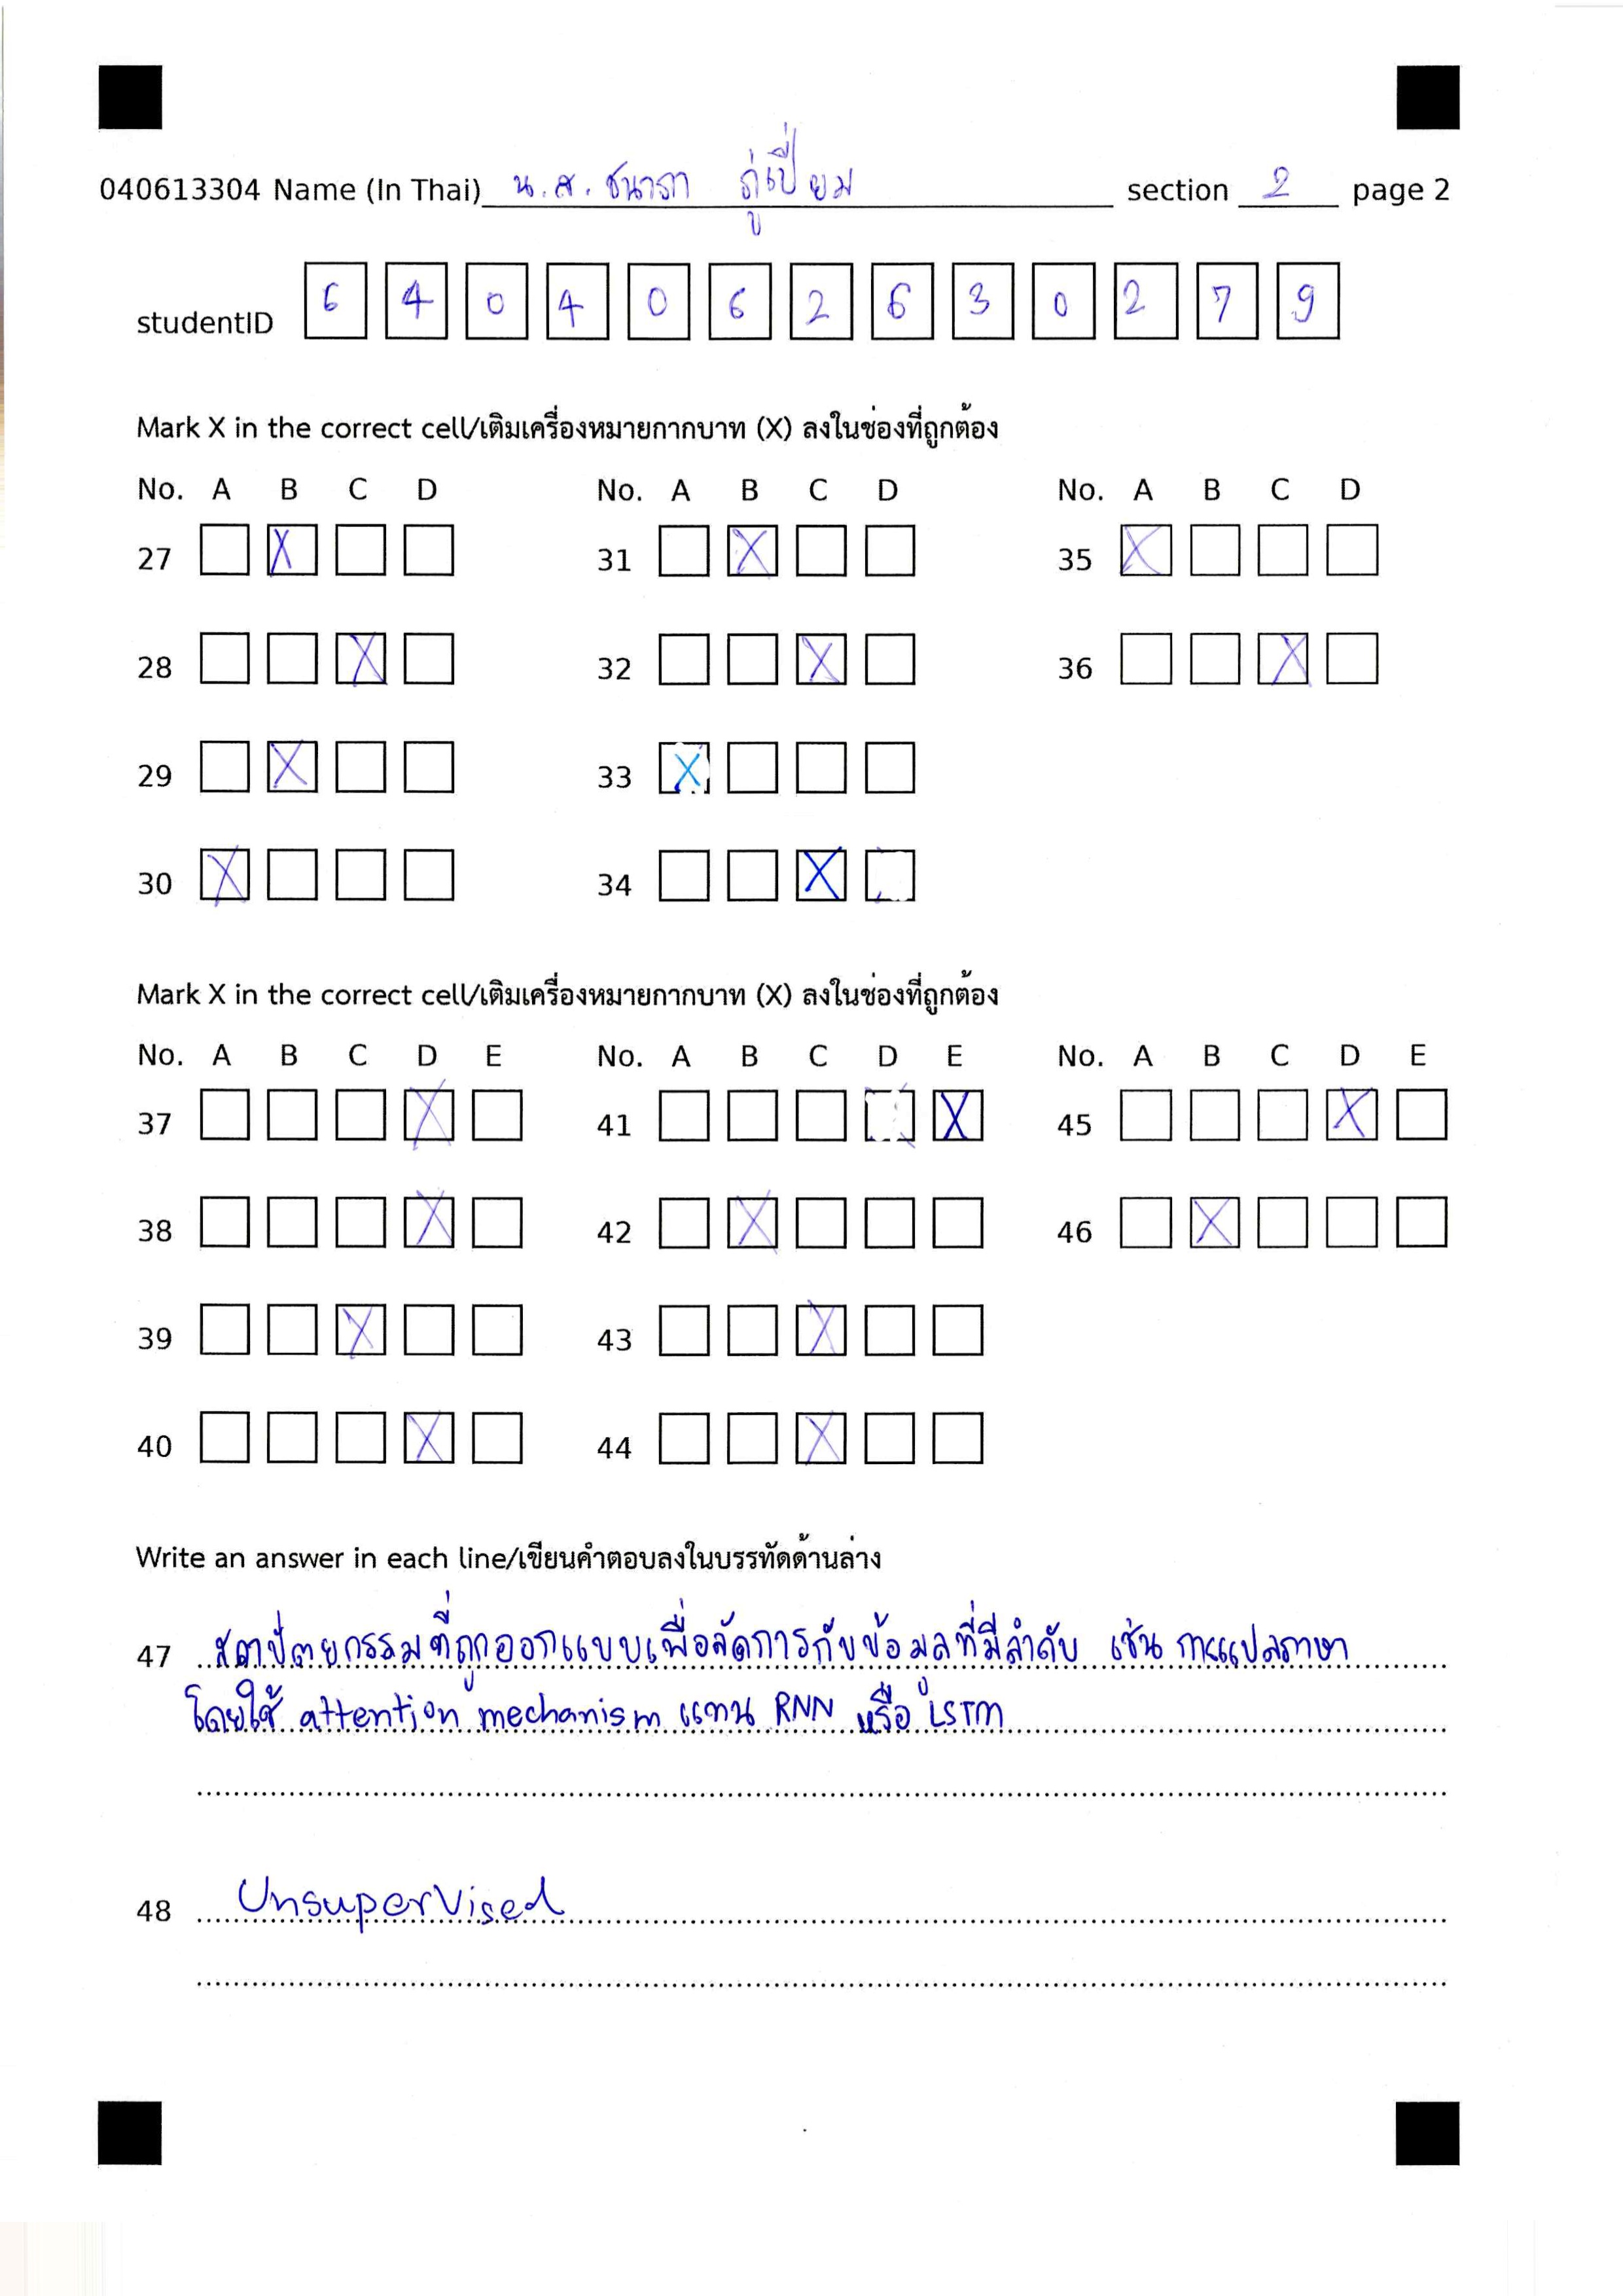 040613304 Name (In Thai) น.ส. ธนาภา ภู่เปี่ยม section 2 page 2
studentID 6 4 0 4 0 6 2 6 3 0 2 7 9
Mark X in the correct cell/เติมเครื่องหมายกากบาท (X) ลงในช่องที่ถูกต้อง
No. A B C D No. A B C D No. A B C D
27 X 31 X 35 X
28 X 32 X 36 X
29 X 33 X
30 X 34 X
Mark X in the correct cell/เติมเครื่องหมายกากบาท (X) ลงในช่องที่ถูกต้อง
No. A B C D E No. A B C D E No. A B C D E
37 X 41 X 45 X
38 X 42 X 46 X
39 X 43 X
40 X 44 X
Write an answer in each line/เขียนคำตอบลงในบรรทัดด้านล่าง
47 สถาปัตยกรรมที่ถูกออกแบบเพื่อจัดการกับข้อมูลที่มีลำดับ เช่น การแปลภาษา
โดยใช้ attention mechanism แทน RNN หรือ LSTM
48 Unsupervised